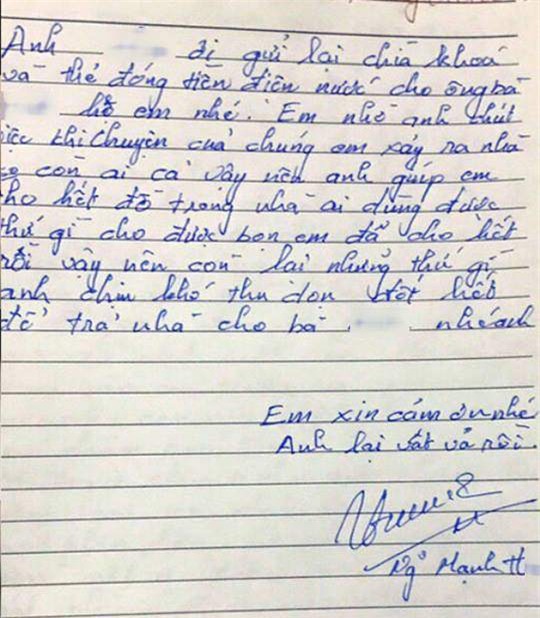 Anh đi gửi lại chìa khoá
và thẻ đóng tiền điện nước cho ông bà
hộ em nhé. Em nhờ anh chút
việc thì chuyện của chúng em xảy ra nhà
còn ai cả vậy nên anh giúp em
cho hết đồ trong nhà ai dùng được
thứ gì cho được bọn em đã cho hết
rồi vậy nên còn lại những thứ gì
anh chịu khó thu dọn đốt hết
để trả nhà cho bà nhé anh
Em xin cám ơn nhé
Anh lại vất vả rồi.
Ng Mạnh H